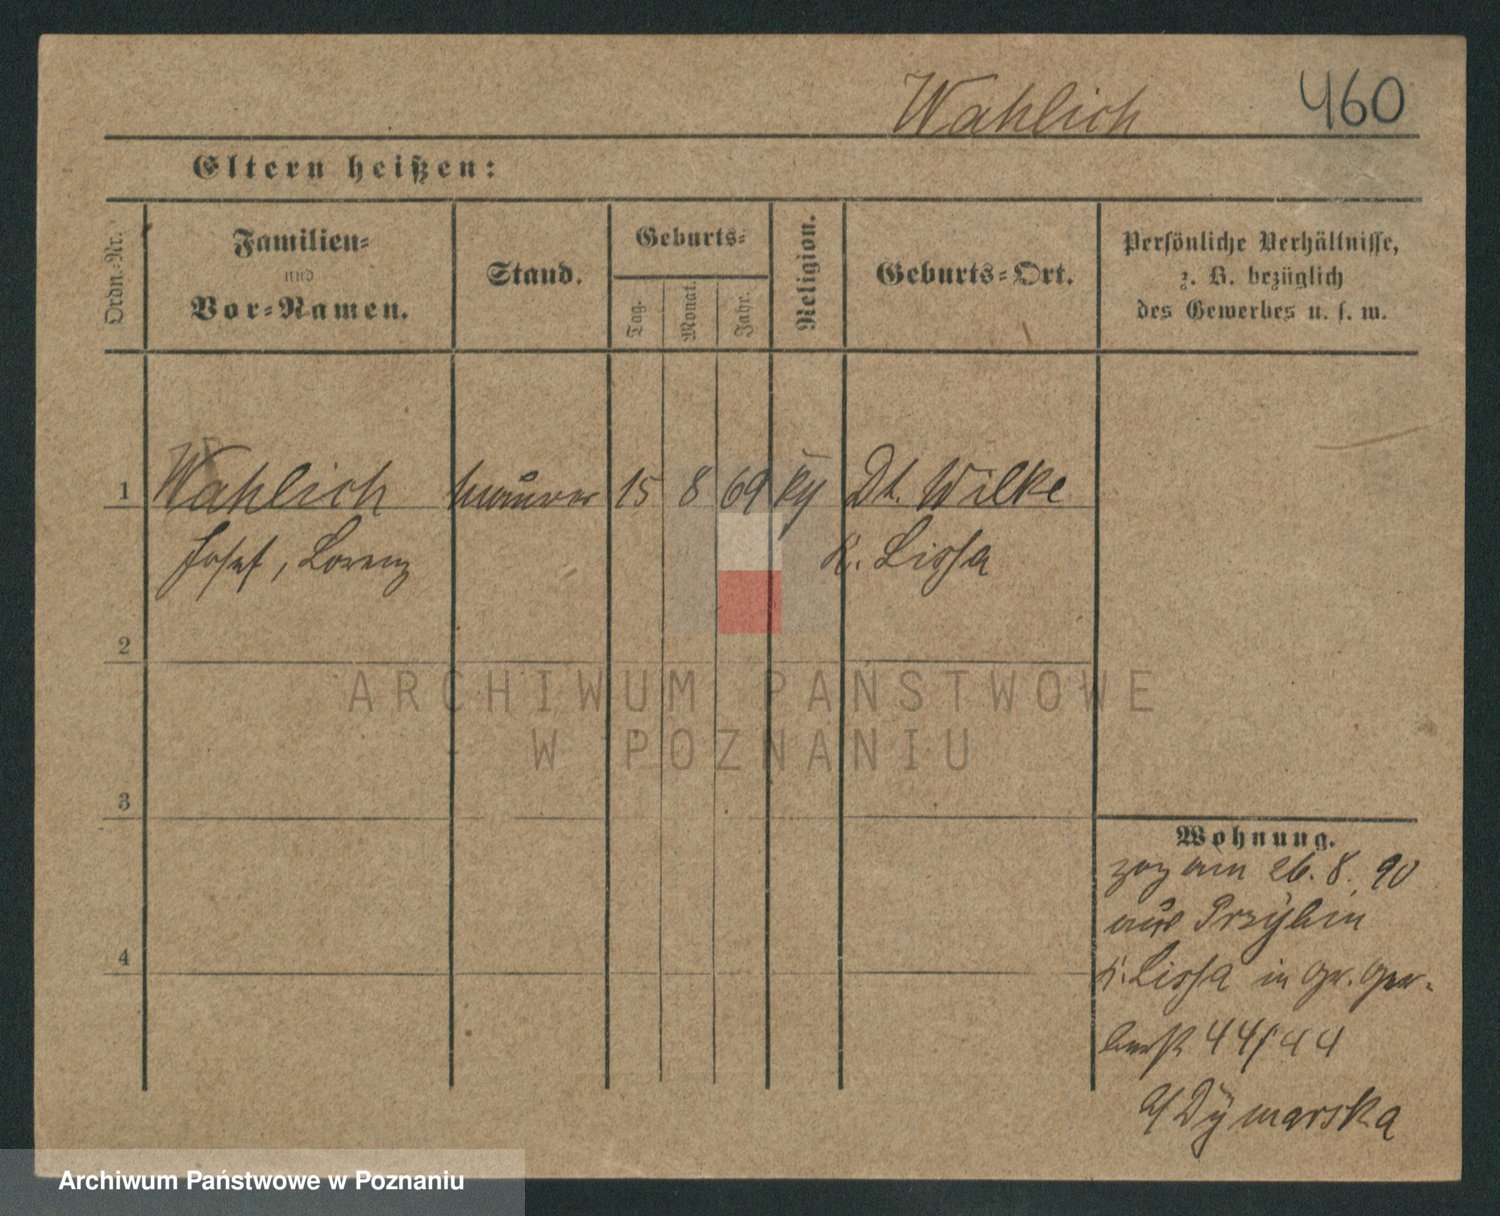 Wahlich 460
Eltern heißen:
Ordn.-Nr.
Familien-
und
Vor-Namen.
Stand.
Geburts-
Tag.
Monat.
Jahr.
Religion.
Geburts-Ort.
Persönliche Verhältnisse,
z. B. bezüglich
des Gewerbes u. s. w.
1 Wahlich Maurer 15 8 69 Dt. Wilke
Josef, Lorenz K. Lissa
2
3
4
Wohnung.
zog am 26. 8. 90
aus Przybin
K. Lissa in Gr. Ger-
berst 44/44
Dymarska
ARCHIWUM PAŃSTWOWE
W POZNANIU
Archiwum Państwowe w Poznaniu